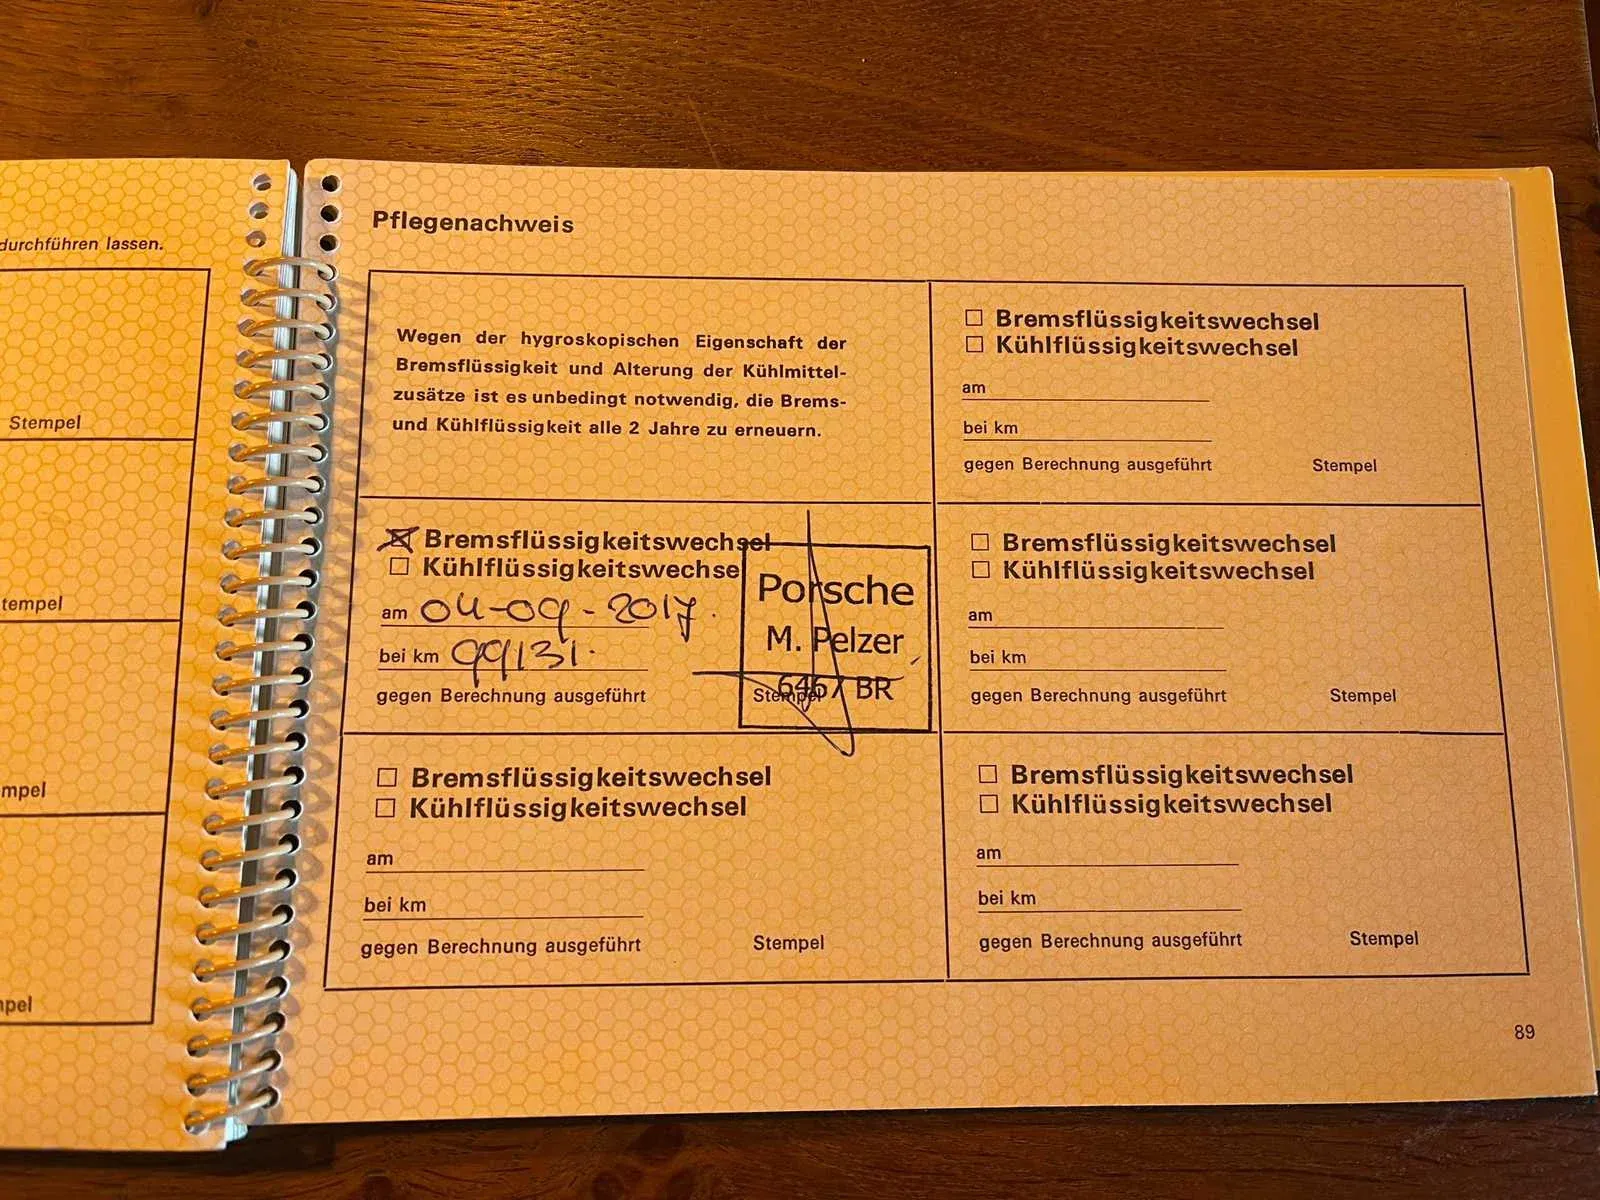 durchführen lassen.
Stempel
tempel
mpel
mpel
Pflegenachweis
Wegen der hygroskopischen Eigenschaft der
Bremsflüssigkeit und Alterung der Kühlmittel-
zusätze ist es unbedingt notwendig, die Brems-
und Kühlflüssigkeit alle 2 Jahre zu erneuern.
Bremsflüssigkeitswechsel
Kühlflüssigkeitswechsel
am
bei km
gegen Berechnung ausgeführt Stempel
Bremsflüssigkeitswechsel
Kühlflüssigkeitswechse
am 04-09-2017.
bei km 99131.
gegen Berechnung ausgeführt Stempel
Porsche
M. Pelzer
6467 BR
Bremsflüssigkeitswechsel
Kühlflüssigkeitswechsel
am
bei km
gegen Berechnung ausgeführt Stempel
Bremsflüssigkeitswechsel
Kühlflüssigkeitswechsel
am
bei km
gegen Berechnung ausgeführt Stempel
Bremsflüssigkeitswechsel
Kühlflüssigkeitswechsel
am
bei km
gegen Berechnung ausgeführt Stempel
89